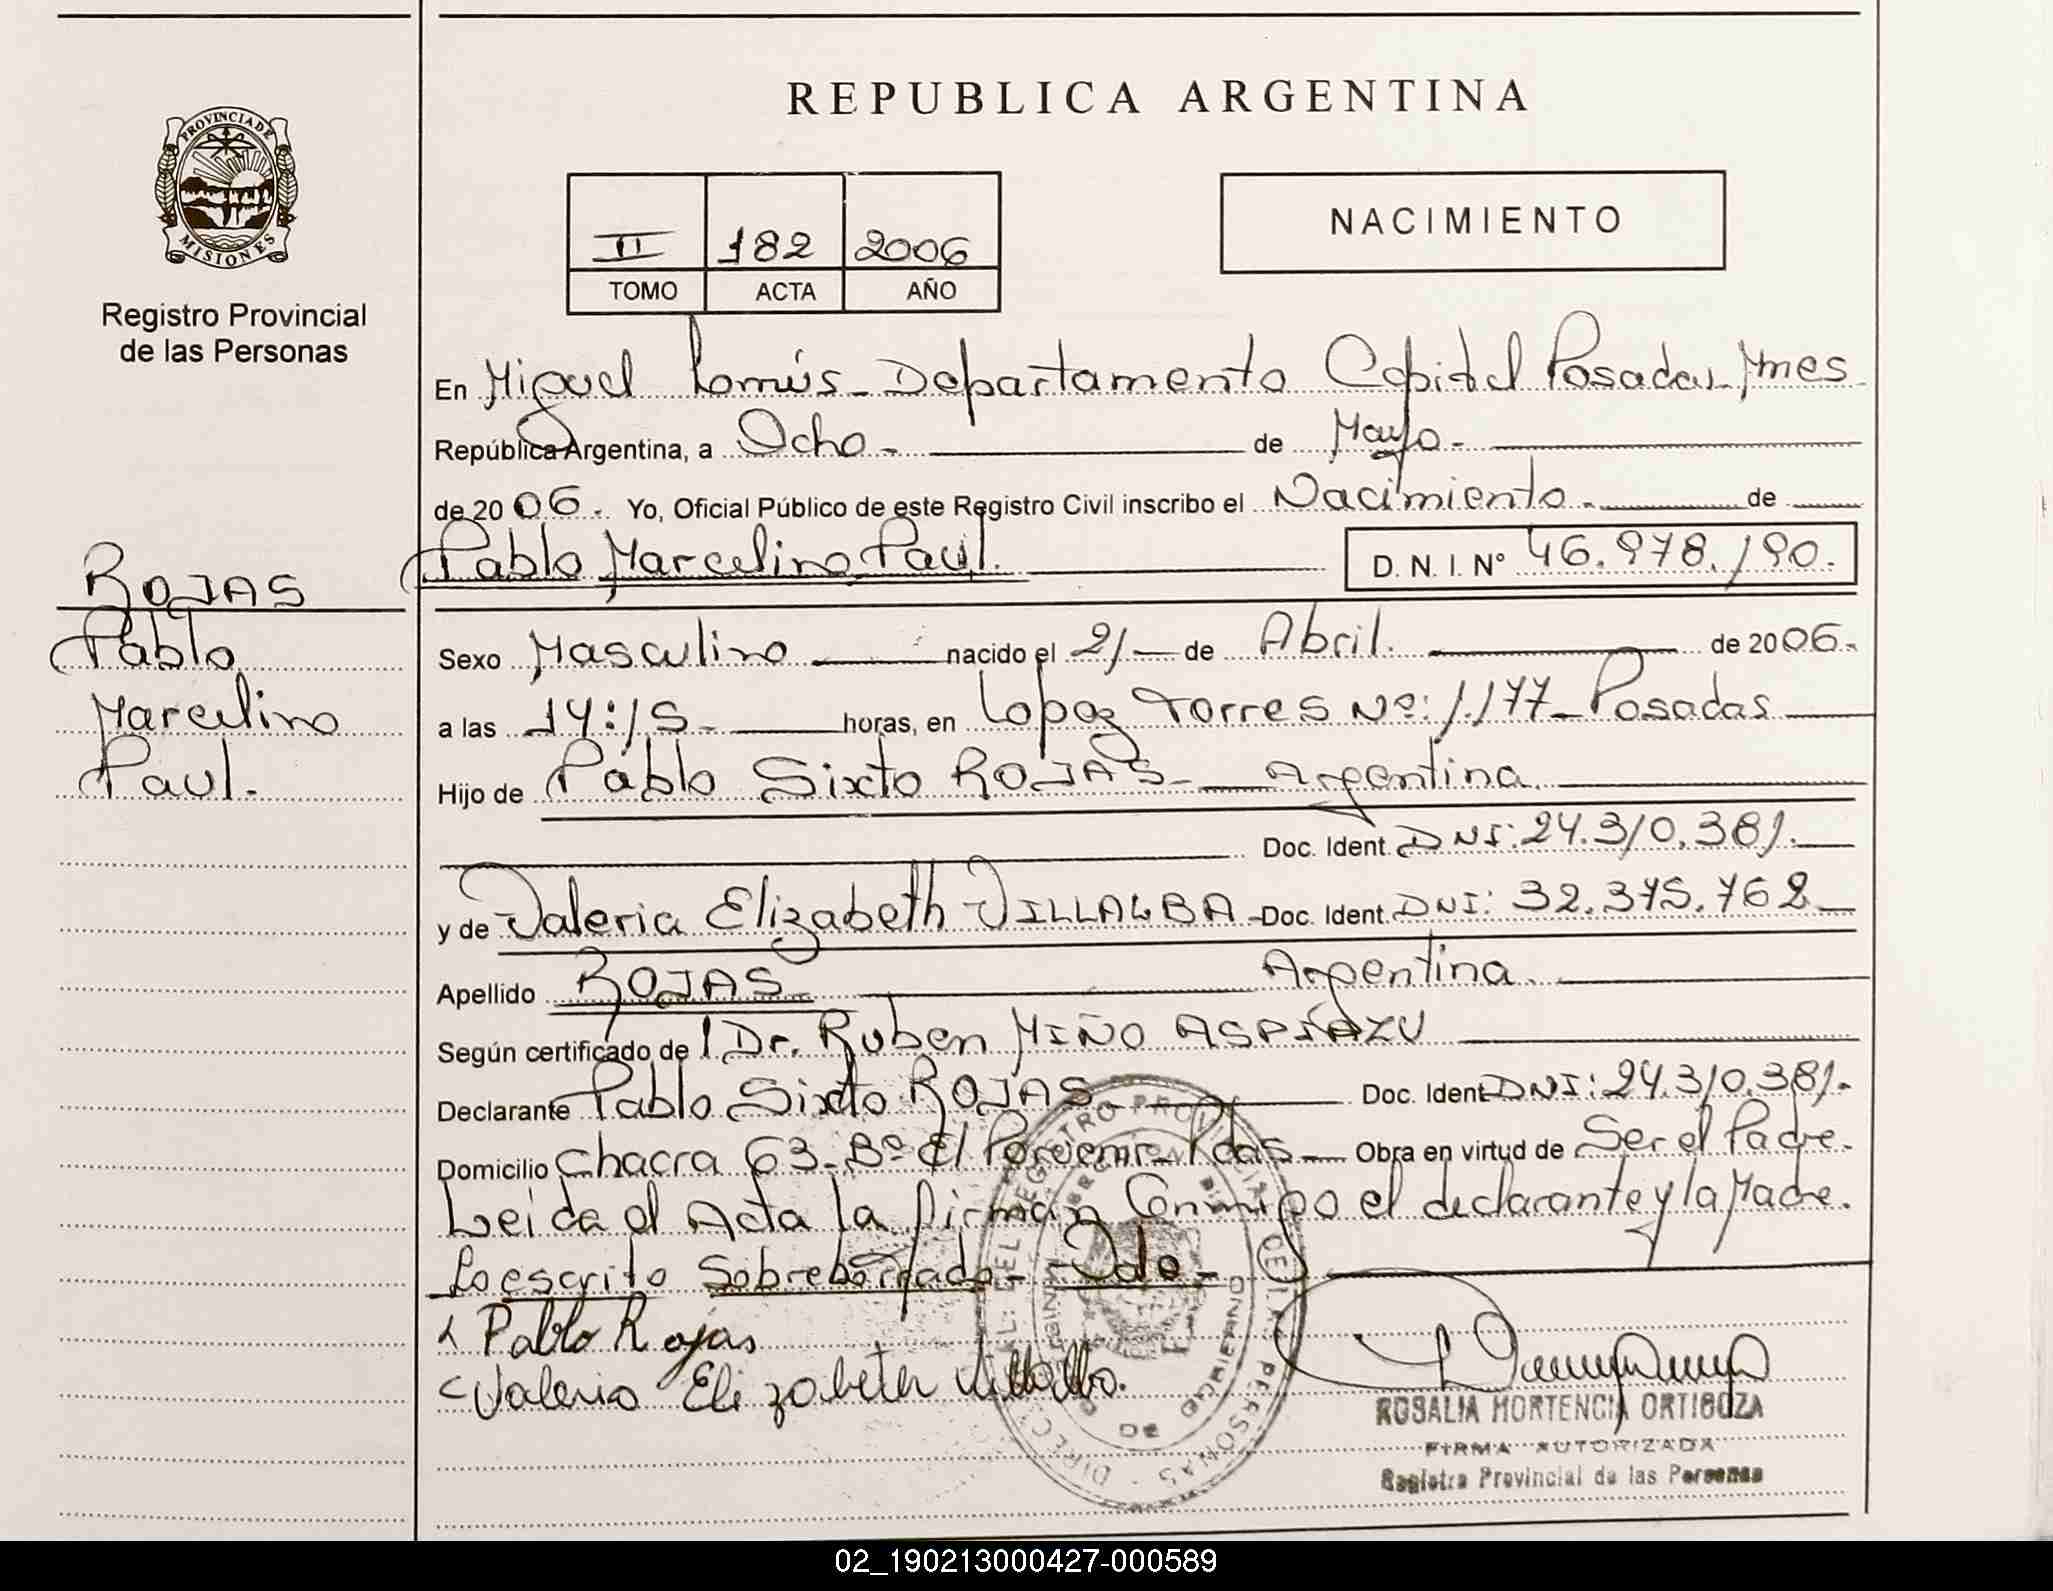 REPUBLICA ARGENTINA
PROVINCIA DE
MISIONES
Registro Provincial
de las Personas
II 182 2006
TOMO ACTA AÑO
NACIMIENTO
En Miguel Lanús - Departamento Capital Posadas - Mnes
República Argentina, a Ocho - de Mayo -
de 2006. Yo, Oficial Público de este Registro Civil inscribo el Nacimiento - de
Pablo Marcelino Paul. D. N. I. Nº 46.978.190.
ROJAS
Pablo
Marcelino
Paul.
Sexo Masculino nacido el 21 - de Abril. de 2006.
a las 14:15 - horas, en Lopez Torres Nº: 1.177 - Posadas
Hijo de Pablo Sixto ROJAS - Argentina.
Doc. Ident. DNI: 24.310.381.
y de Valeria Elizabeth VILLALBA - Doc. Ident. DNI: 32.375.762
Apellido ROJAS Argentina.
Según certificado de l Dr. Ruben MIÑO ASPIAZU
Declarante Pablo Sixto ROJAS Doc. Ident. DNI: 24.310.381.
Domicilio Chacra 63 - Bº El Porvenir - Pdas - Obra en virtud de Ser el Padre.
Leida el Acta la firman Conmigo el declarante y la Madre.
Lo escrito Sobreborrado - - Vale -
Pablo Rojas
Valeria Elizabeth Villalba.
ROSALIA HORTENCIA ORTIGOZA
FIRMA AUTORIZADA
Registro Provincial de las Personas
02_190213000427-000589